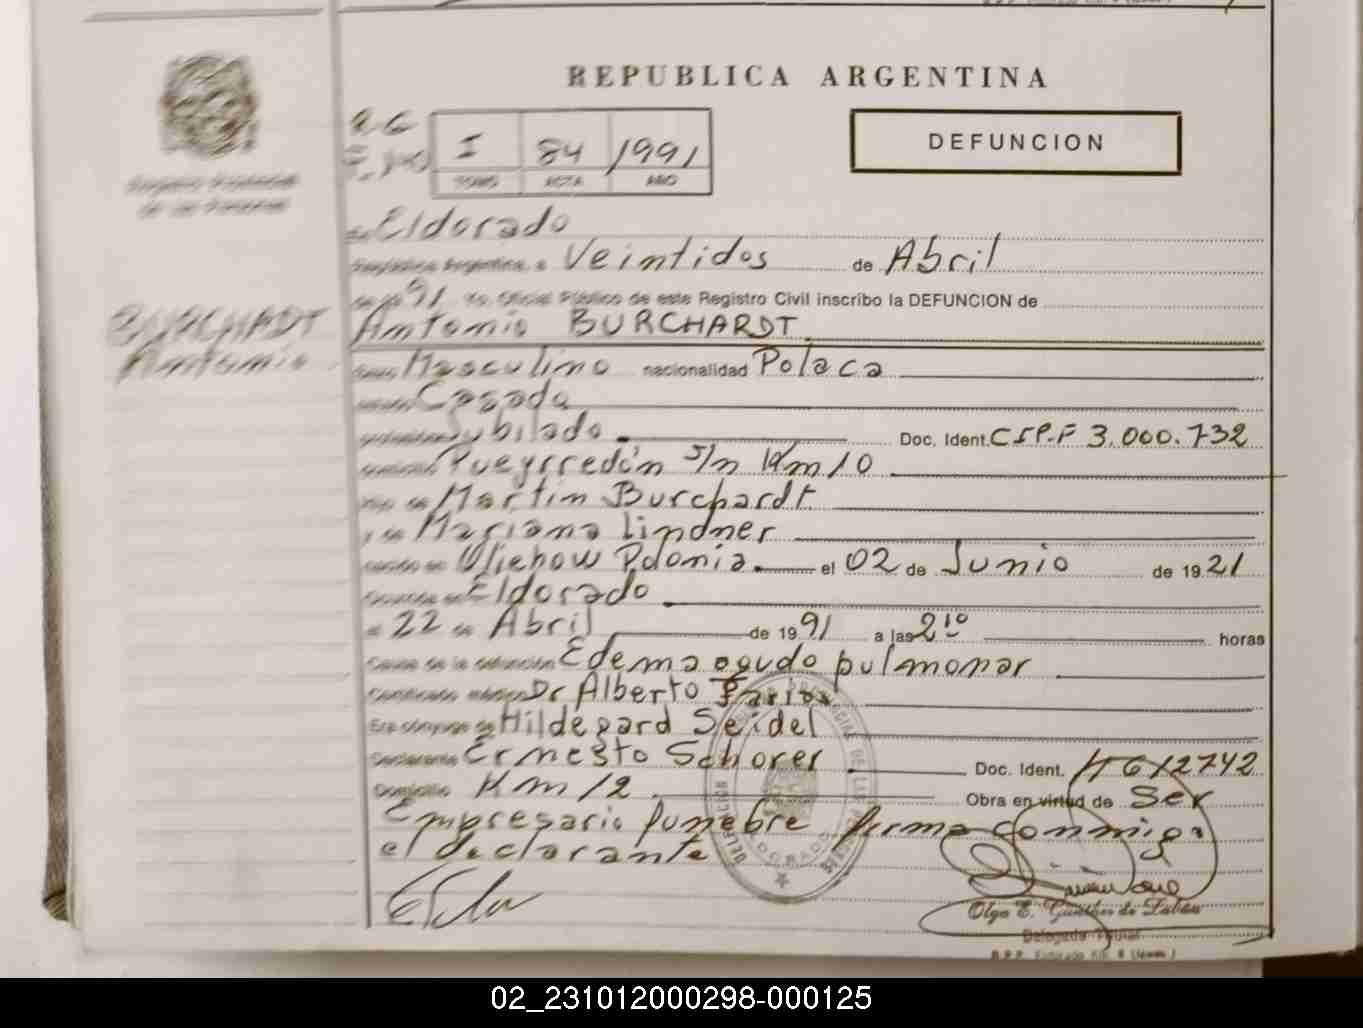 REPUBLICA ARGENTINA
I 84 1991
TOMO ACTA AÑO
DEFUNCION
Registro Provincial
de las Personas
En Eldorado
República Argentina, a Veintidos de Abril
de 1991 Yo, Oficial Público de este Registro Civil inscribo la DEFUNCION de
BURCHADT
Antonio
Antonio BURCHARDT
Sexo Masculino nacionalidad Polaca
Casado
Jubilado Doc. Ident. CIP.F 3.000.732
Pueyrredón S/n Km 10
Hijo de Martin Burchardt
y de Mariana Lindner
nacido en Polonia el 02 de Junio de 1921
Eldorado
el 22 de Abril de 1991 a las 2 10 horas
Causa de la defunción Edema agudo pulmonar
Certificado médico Dr Alberto
Era cónyuge de Hildegard Seidel
Declarante Ernesto Schorer Doc. Ident. 612742
Domicilio Km 12 Obra en virtud de Ser
Empresario funebre firma conmigo
el declarante
DELEGACION ELDORADO
Olga E. Günther de
Delegada Titular
02_231012000298-000125